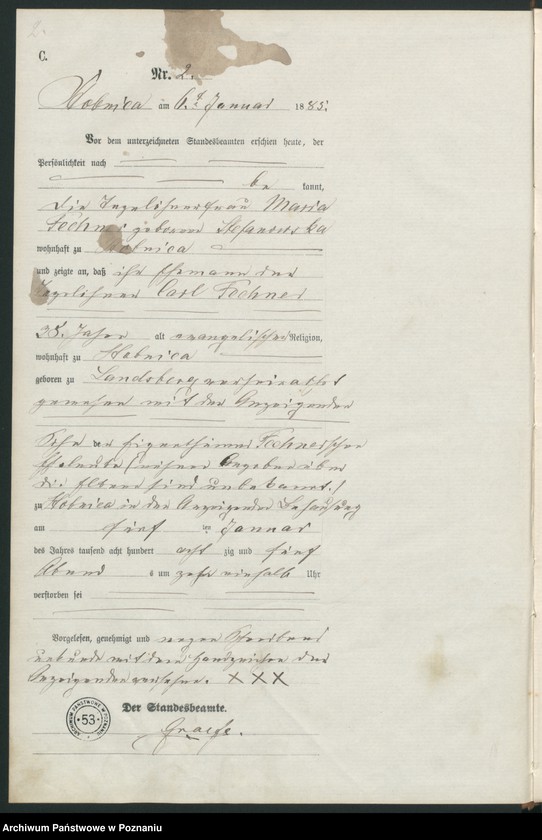 2.
C.
Nr. 2.
am 6ten Januar 1885.
Vor dem unterzeichneten Standesbeamten erschien heute, der
Persönlichkeit nach
be kannt,
die Tagelöhnerfrau Maria
Fechner geborene Stefanowska
wohnhaft zu
und zeigte an, daß ihr Ehemann der
Tagelöhner Carl Fechner
35 Jahre alt evangelischer Religion,
wohnhaft zu
geboren zu Landsberg verheirathet
gewesen mit der Anzeigenden
Sohn der Eigenthümer Fechnerschen
Eheleute (nähere Angaben über
die Eltern sind unbekannt.)
zu in der Anzeigenden Behausung
am fünf ten Januar
des Jahres tausend acht hundert acht zig und fünf
Abend s um zehn einhalb Uhr
verstorben sei
Vorgelesen, genehmigt und wegen Schreibens
unkunde mit dem Handzeichen der
Anzeigenden versehen. XXX
Der Standesbeamte.
Graefe.
ARCHIWUM PAŃSTWOWE W POZNANIU
53
Archiwum Państwowe w Poznaniu